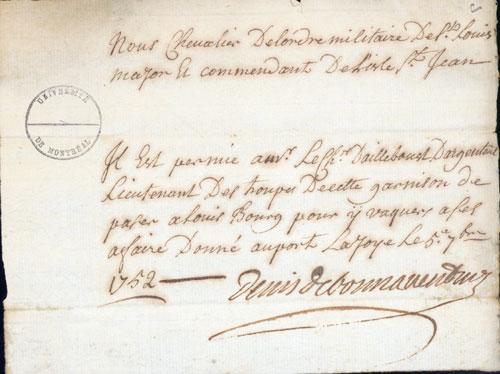 Nous Chevalier Delordre militaire De St Louis
major Et commendant Delisle St Jean
UNIVERSITÉ
DE MONTRÉAL
Il Est permie a mr. Le Chr. Dailleboust Dargenteuil
Lieutenant Des troupes Decette garnison de
paser a Louis Bourg pour ÿ vaquer a ses
affaire Donné au port Lajoye Le 5e 7bre
1752
Denis de Bonnaventure